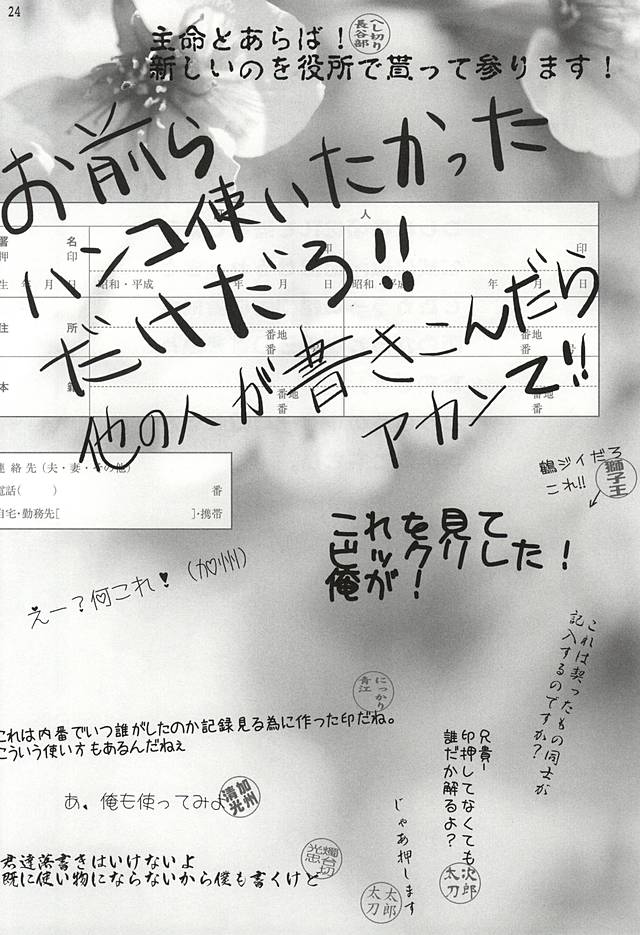 24
主命とあらば！
へし切り
長谷部
新しいのを役所で貰って参ります！
お前ら
ハンコ使いたかった
だけだろ!!
他の人が書きこんだら
アカンて!!
人
署名
押印
印
印
生年月日
昭和・平成 年 月 日
昭和・平成 年 月 日
住所
番地
番 号
番地
番 号
本籍
番地
番
番地
番
連絡先（夫・妻・その他）
電話（ ） 番
自宅・勤務先[ ]・携帯
鶴ジイだろ
これ!!
獅子王
これを見て
ビックリした！
俺が！
えー？何これ♥（加州）
これは契ったもの同士が
記入するのですか？
にっかり
青江
これは内番でいつ誰がしたのか記録見る為に作った印だね。
こういう使い方もあるんだねぇ
兄貴ー
印押してなくても
誰だか解るよ？
次郎
太刀
あ、俺も使ってみよ
加州
清光
じゃあ押します
太郎
太刀
君達落書きはいけないよ
燭台切
光忠
既に使い物にならないから僕も書くけど